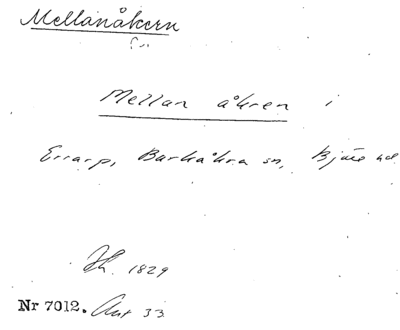 Mellanåkern
Mellan åkren i
Errarp, Barkåkra sn, Bjäre hd
1829
Nr 7012. Avt 33